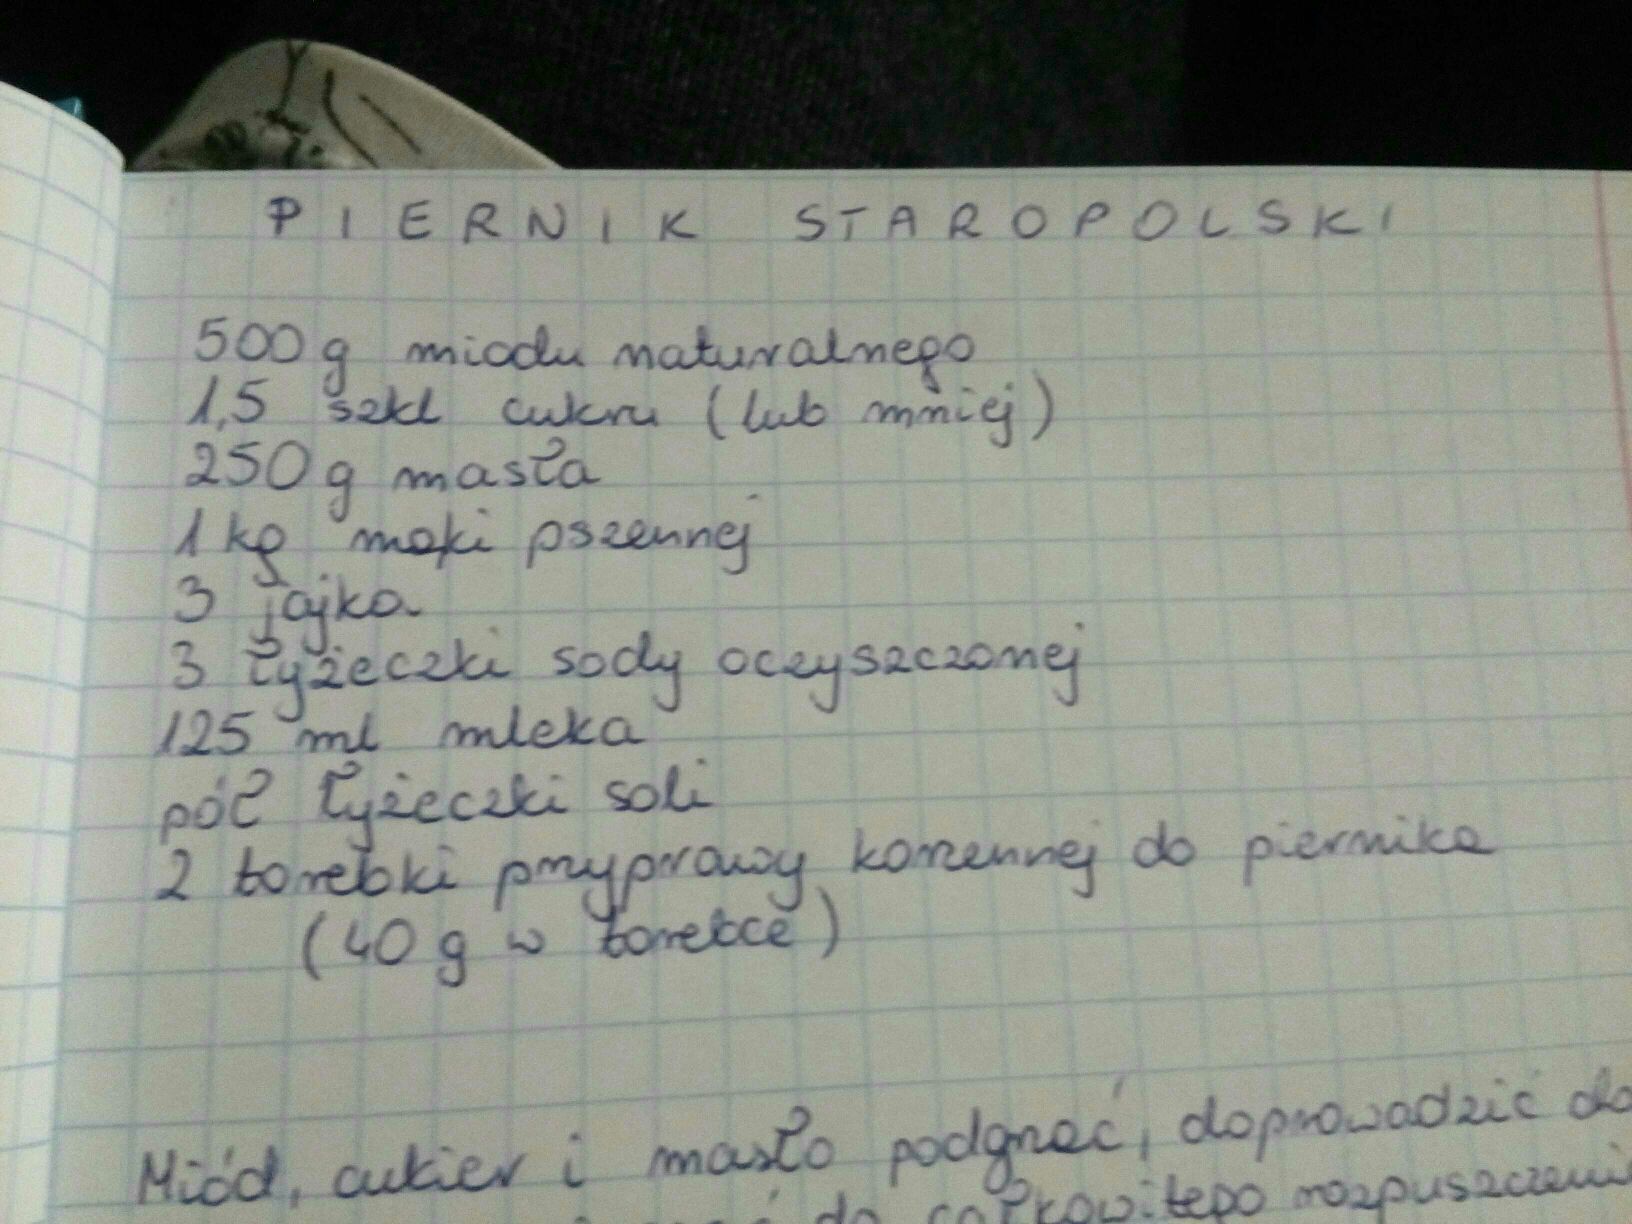 PIERNIK STAROPOLSKI
500 g miodu naturalnego
1,5 szkl cukru (lub mniej)
250 g masła
1 kg mąki pszennej
3 jajka
3 łyżeczki sody oczyszczonej
125 ml mleka
pół łyżeczki soli
2 torebki przyprawy korzennej do piernika
(40 g w torebce)
Miód, cukier i masło podgrzać, doprowadzić do
do całkowitego rozpuszczenia